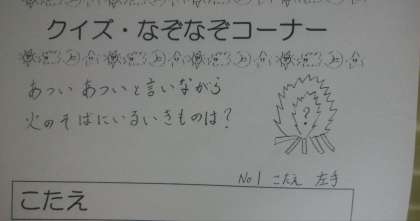 クイズ・なぞなぞコーナー
あつい あついと言いながら
火のそばにいるいきものは?
?
No1 こたえ 左手
こたえ